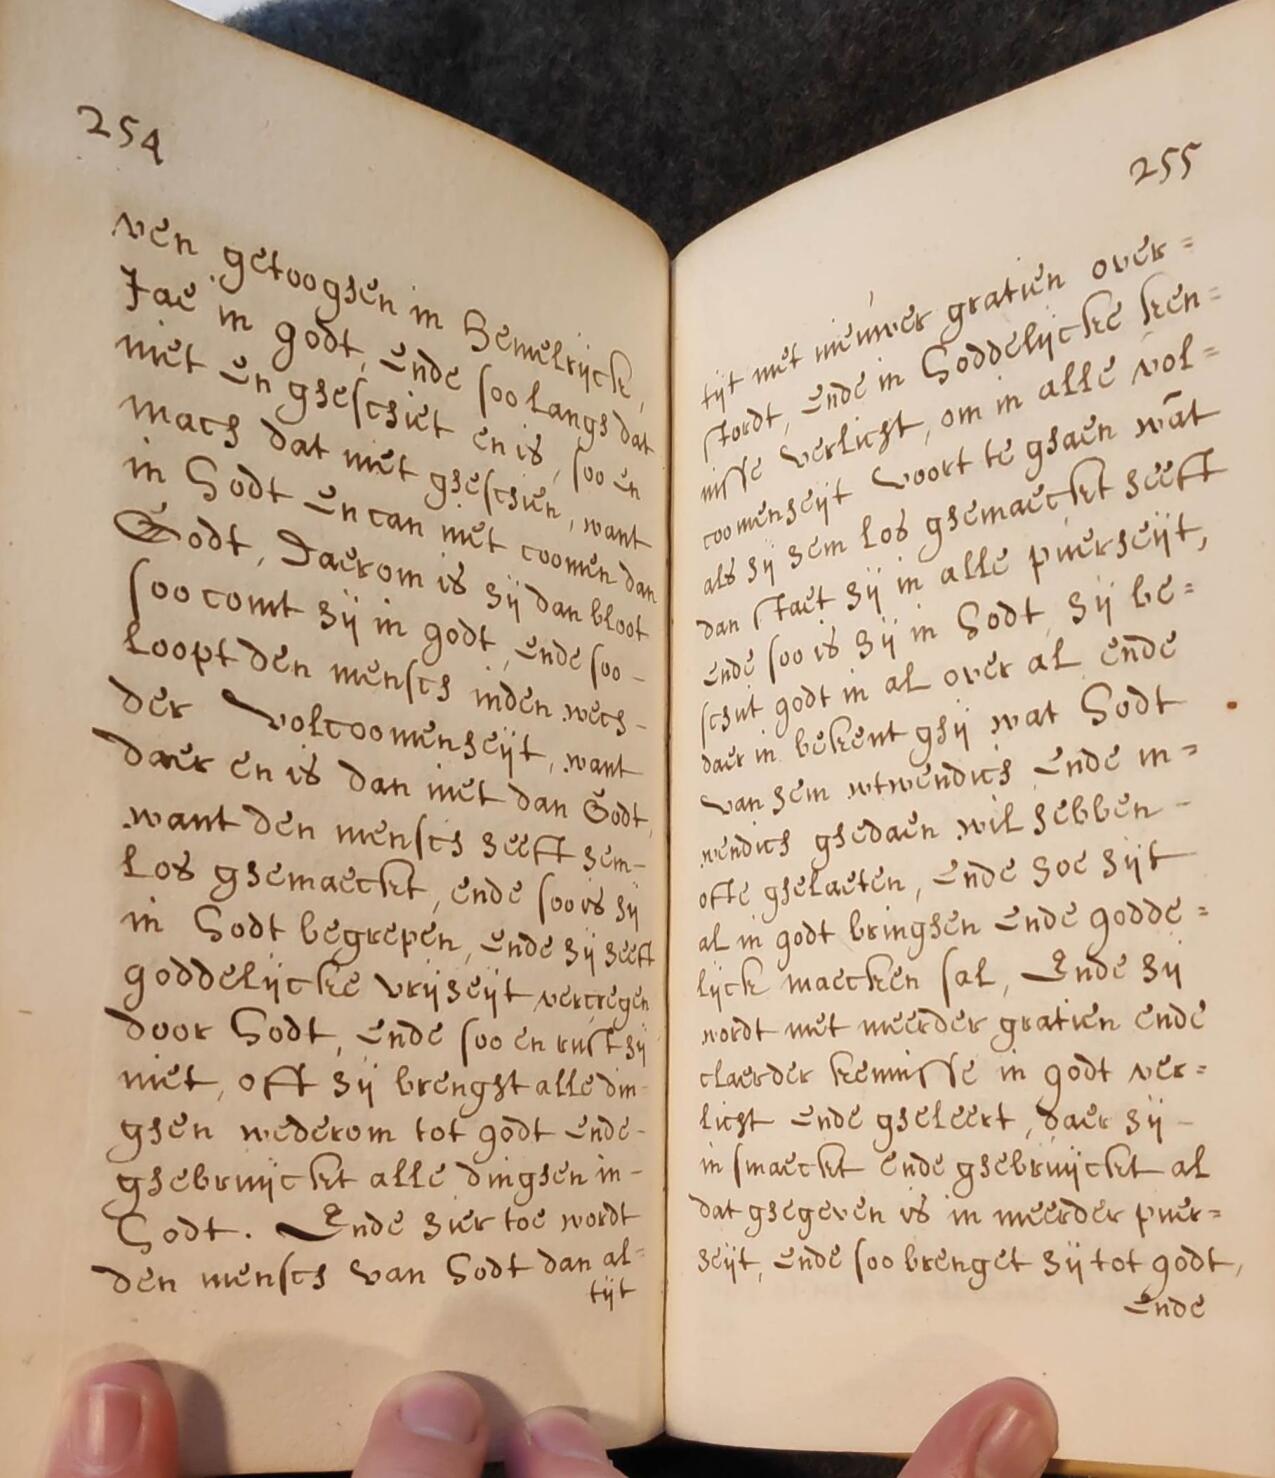 254
ven getooghen in hemelrijck,
Jae in godt, ende soo langh dat
niet en gheschiet en is, soo en
mach dat niet gheschien, want
in Godt en can niet coomen dan
Godt, Daerom is hij dan bloot
soo comt hij in godt, ende soo -
loopt den mensch inden wech -
der volcoomenheijt, want
daer en is dan niet dan Godt,
want den mensch heeft hem -
los ghemaeckt, ende soo is hij
in Godt begrepen, ende hij heeft
goddelijcke vrijheijt vercregen
door Godt, ende soo en rust hij
niet, oft hij brenght alle din-
ghen wederom tot godt ende -
ghebruijckt alle dinghen in -
Godt. Ende hier toe wordt
den mensch van Godt dan al=
tijt
255
tijt met nieuwer gratien over=
stordt, ende in Goddelijcke ken=
nisse verlicht, om in alle vol=
coomenheijt voort te ghaen wāt
als hij hem los ghemaeckt heeft
dan staet hij in alle puerheijt,
ende soo is hij in Godt, hij be=
schut godt in al over al ende
daer in bekent ghij wat Godt
van hem wtwendich ende in=
wendich ghedaen wil hebben -
ofte ghelaeten, ende hoe hijt
al in godt bringhen ende godde=
lijck maecken sal, Ende hij
wordt met meerder gratien ende
claerder kennisse in godt ver=
licht ende gheleert, daer hij -
in smaeckt ende ghebruijckt al
dat ghegeven is in meerder puer=
heijt, ende soo brenget hij tot godt,
ende